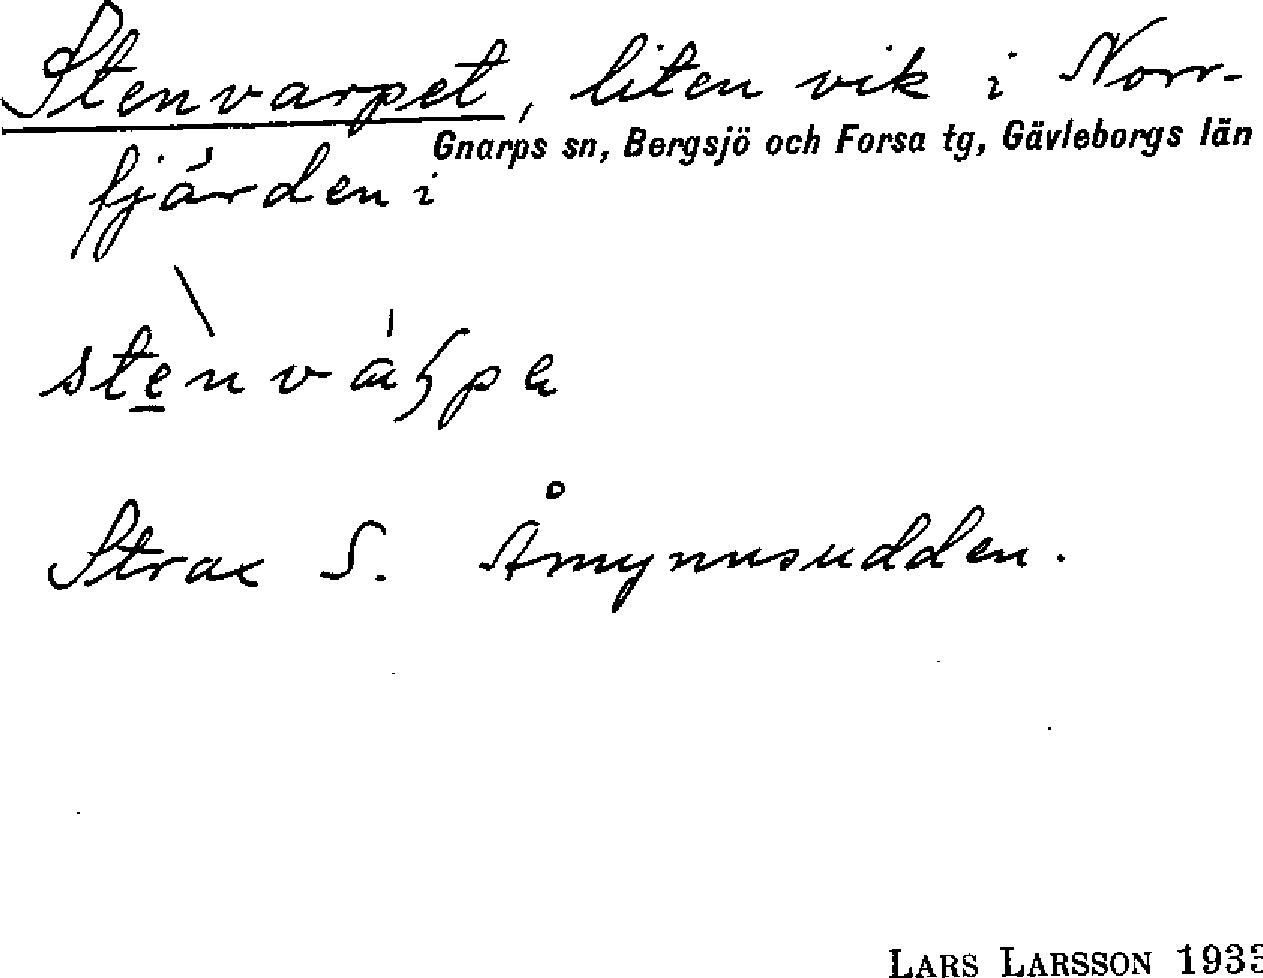 Stenvarpet, liten vik i Norr-
Gnarps sn, Bergsjö och Forsa tg, Gävleborgs län
fjärden i
Strax S. Åmynnsudden.
LARS LARSSON